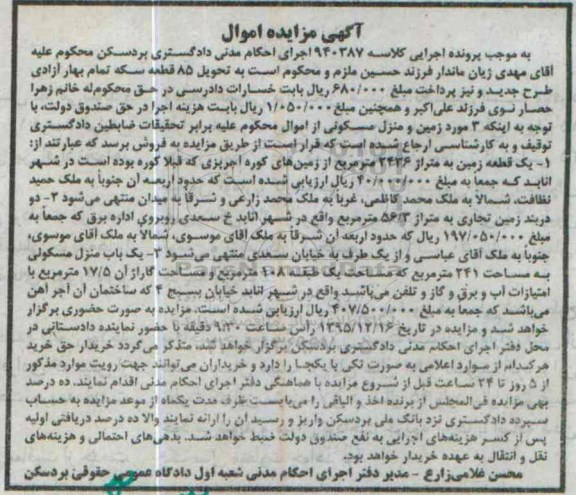 آگهی مزایده اموال
به موجب پرونده اجرایی کلاسه ۹۴۰۳۸۷ اجرای احکام مدنی دادگستری بردسکن محکوم علیه
آقای مهدی ژیان ماندار فرزند حسین ملزم و محکوم است به تحویل ۸۵ قطعه سکه تمام بهار آزادی
طرح جدید و نیز پرداخت مبلغ ۶۸۰/۰۰۰ ریال بابت خسارات دادرسی در حق محکوم‌له خانم زهرا
حصار نوی فرزند علی‌اکبر و همچنین مبلغ ۱/۰۵۰/۰۰۰ ریال بابت هزینه اجرا در حق صندوق دولت، با
توجه به اینکه ۳ مورد زمین و منزل مسکونی از اموال محکوم علیه برابر تحقیقات ضابطین دادگستری
توقیف و به کارشناسی ارجاع شده است که قرار است از طریق مزایده به فروش برسد که عبارتند از:
۱- یک قطعه زمین به متراژ ۲۴۳۶ مترمربع از زمین‌های کوره آجرپزی که قبلا کوره بوده است در شهر
انابد که جمعا به مبلغ ۴۰/۰۰۰/۰۰۰ ریال ارزیابی شده است که حدود اربعه آن جنوبا به ملک حمید
نظافت، شمالا به ملک محمد کاظمی، غربا به ملک محمد زارعی و شرقا به میدان منتهی می‌شود ۲- دو
دربند زمین تجاری به متراژ ۵۶/۳ مترمربع واقع در شهر انابد خ سعدی روبروی اداره برق که جمعا به
مبلغ ۱۹۷/۰۵۰/۰۰۰ ریال که حدود اربعه آن شرقا به ملک آقای موسوی، شمالا به ملک آقای موسوی،
جنوبا به ملک آقای عباسی و از یک طرف به خیابان سعدی منتهی می‌شود ۳- یک باب منزل مسکونی
به مساحت ۲۴۱ مترمربع که مساحت یک طبقه ۱۰۸ مترمربع و مساحت گاراژ آن ۱۷/۵ مترمربع با
امتیازات آب و برق و گاز و تلفن می‌باشد واقع در شهر انابد خیابان بسیج ۴ که ساختمان آن آجر آهن
می‌باشد که جمعا به مبلغ ۴۰۷/۵۰۰/۰۰۰ ریال ارزیابی شده است. مزایده به صورت حضوری برگزار
خواهد شد و مزایده در تاریخ ۱۳۹۵/۱۲/۱۶ رأس ساعت ۹:۳۰ دقیقه با حضور نماینده دادستانی در
محل دفتر اجرای احکام مدنی دادگستری بردسکن برگزار خواهد شد، متذکر می‌گردد خریدار حق خرید
هرکدام از موارد اعلامی به صورت تکی یا یکجا را دارد و خریداران می‌توانند جهت رویت موارد مذکور
از ۵ روز تا ۲۴ ساعت قبل از شروع مزایده با هماهنگی دفتر اجرای احکام مدنی اقدام نمایند. ده درصد
بهی مزایده فی‌المجلس از برنده اخذ و الباقی را می‌بایست ظرف مدت یکماه از موعد مزایده به حساب
سپرده دادگستری نزد بانک ملی بردسکن واریز و رسید آن را ارائه نمایند والا ده درصد دریافتی اولیه
پس از کسر هزینه‌های اجرایی به نفع صندوق دولت ضبط خواهد شد. بدهی‌های احتمالی و هزینه‌های
نقل و انتقال به عهده خریدار خواهد بود.
محسن غلامی‌زارع - مدیر دفتر اجرای احکام مدنی شعبه اول دادگاه عمومی حقوقی بردسکن